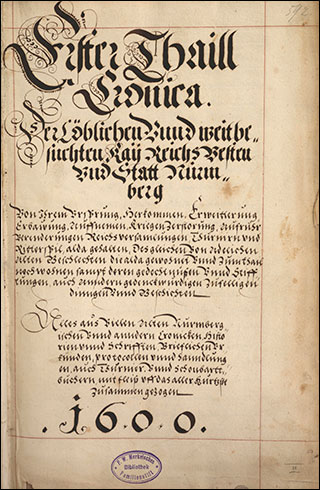 Erster Thaill
Cronica.
Der Löblichen Vnnd weit be-
suchten Kaÿ: Reichs Vesten
Vnd Statt Nürm-
berg
Von Jhrem Vrsprung, Herkommen, Erweitterung
Erbawung, Auffnemen, Kriegen Zerstörung, Auffruhr
Verenderungen Reichsversamlungen Thurnirn vnd
Ritterspil, alda gehalten, Des gleichen Von Adelichen
Alten Geschlechten die alda gewohnet Vnnd Zum thail
noch wohnen sampt deren gedechtnussen Vnnd Stiff-
tungen, auch Anndern gedenckwürdigen Zufelligen
dingen Vnnd Geschichten
Alles aus Vielen Alten Nürmberg-
ischen Vnnd anndern Cronicken Histo-
rien vnnd Schrifften Brieflichen Vr-
kunden, Protocollen vnnd Hanndlung-
en, auch Thurnier Vnnd Schonbartt-
büchern mit fleiß vff das aller kürtzst
Zusammen gezogen
.1.6.0.0.
Bibliothek